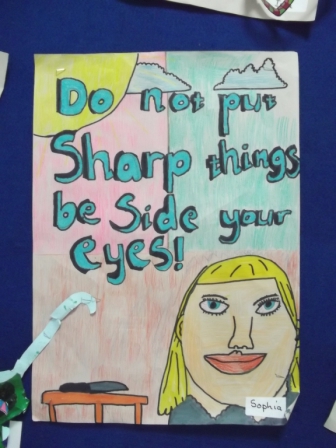 Do not put
Sharp things
be Side your
eyes!
Sophia